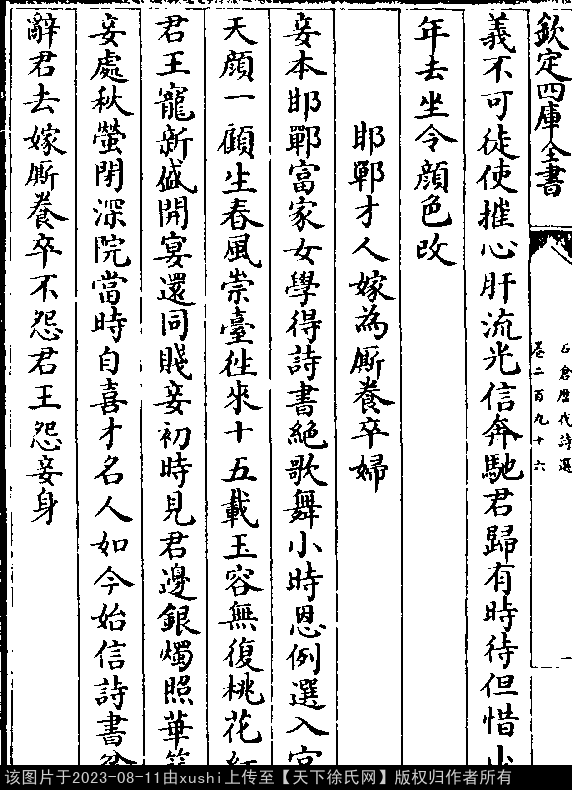 欽定四庫全書
石倉歷代詩選
卷二百九十六
一
義不可徒使摧心肝流光信奔馳君歸有時待但惜少
年去坐令顔色改
邯鄲才人嫁為厮養卒婦
妾本邯鄲富家女學得詩書絶歌舞小時恩例選入宫
天顔一顧生春風崇臺徃來十五載玉容無復桃花紅
君王寵新盛開宴還同賤妾初時見君邊銀燭照華筵
妾處秋螢閉深院當時自喜才名人如今始信詩書
辭君去嫁厮養卒不怨君王怨妾身
该图片于2023-08-11由xushi上传至【天下徐氏网】版权归作者所有